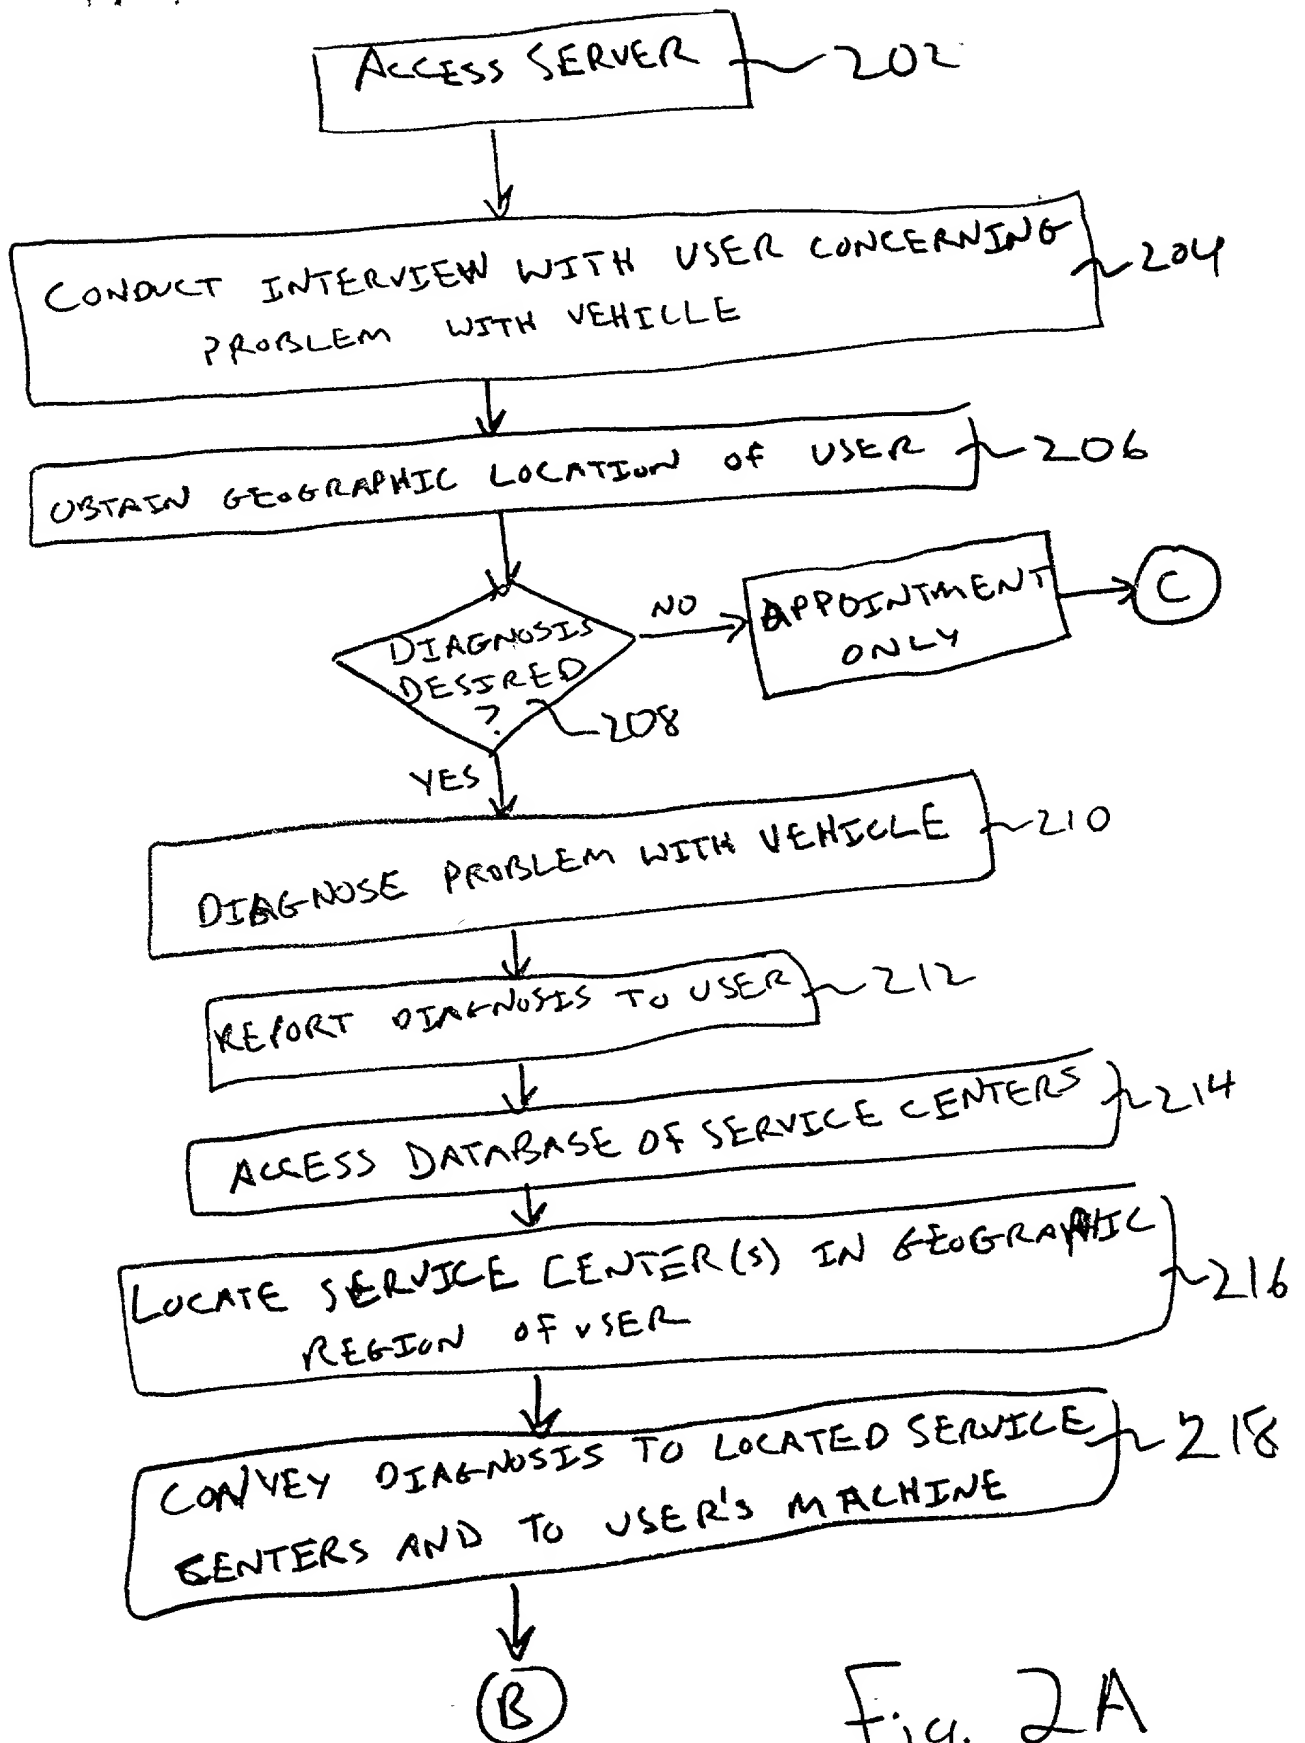 ACCESS SERVER 202
CONDUCT INTERVIEW WITH USER CONCERNING 204
PROBLEM WITH VEHICLE
OBTAIN GEOGRAPHIC LOCATION OF USER 206
DIAGNOSIS
DESIRED
?
208
NO
APPOINTMENT
ONLY
C
YES
DIAGNOSE PROBLEM WITH VEHICLE 210
REPORT DIAGNOSIS TO USER 212
ACCESS DATABASE OF SERVICE CENTERS 214
LOCATE SERVICE CENTER(S) IN GEOGRAPHIC 216
REGION OF USER
CONVEY DIAGNOSIS TO LOCATED SERVICE 218
CENTERS AND TO USER'S MACHINE
B
Fig. 2A